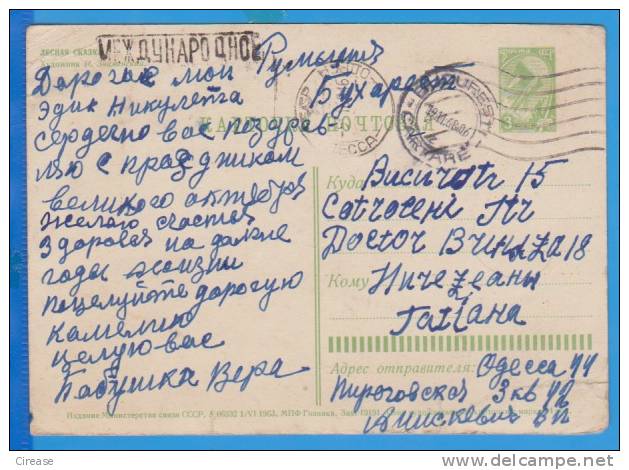 ЛЕСНАЯ СКАЗКА
Художник И.
МЕЖДУНАРОДНОЕ
Румыния
Бухарест
Дорогие мои
Эдик Никулетта
сердечно вас поздрав-
ляю с праздником
великого октября
желаю счастья
здоровья на далкие
годы жизни
поцелуйте дорогую
камелию
целую вас
Бабушка Вера
КАРТОЧКА ПОЧТОВАЯ
ОДЕССА
BUCURESTI
CARTARE
ПОЧТА СССР
3
Куда Bucuresti 15
Cotroceni Str
Doctor 18
Кому
Tatiana
Адрес отправителя: Одесса 44
Пироговская 3 кв 42
Издание Министерства связи СССР. 1/VI 1963. МПФ Гознака. Зак.
Cirease
http://www.delcampe.net